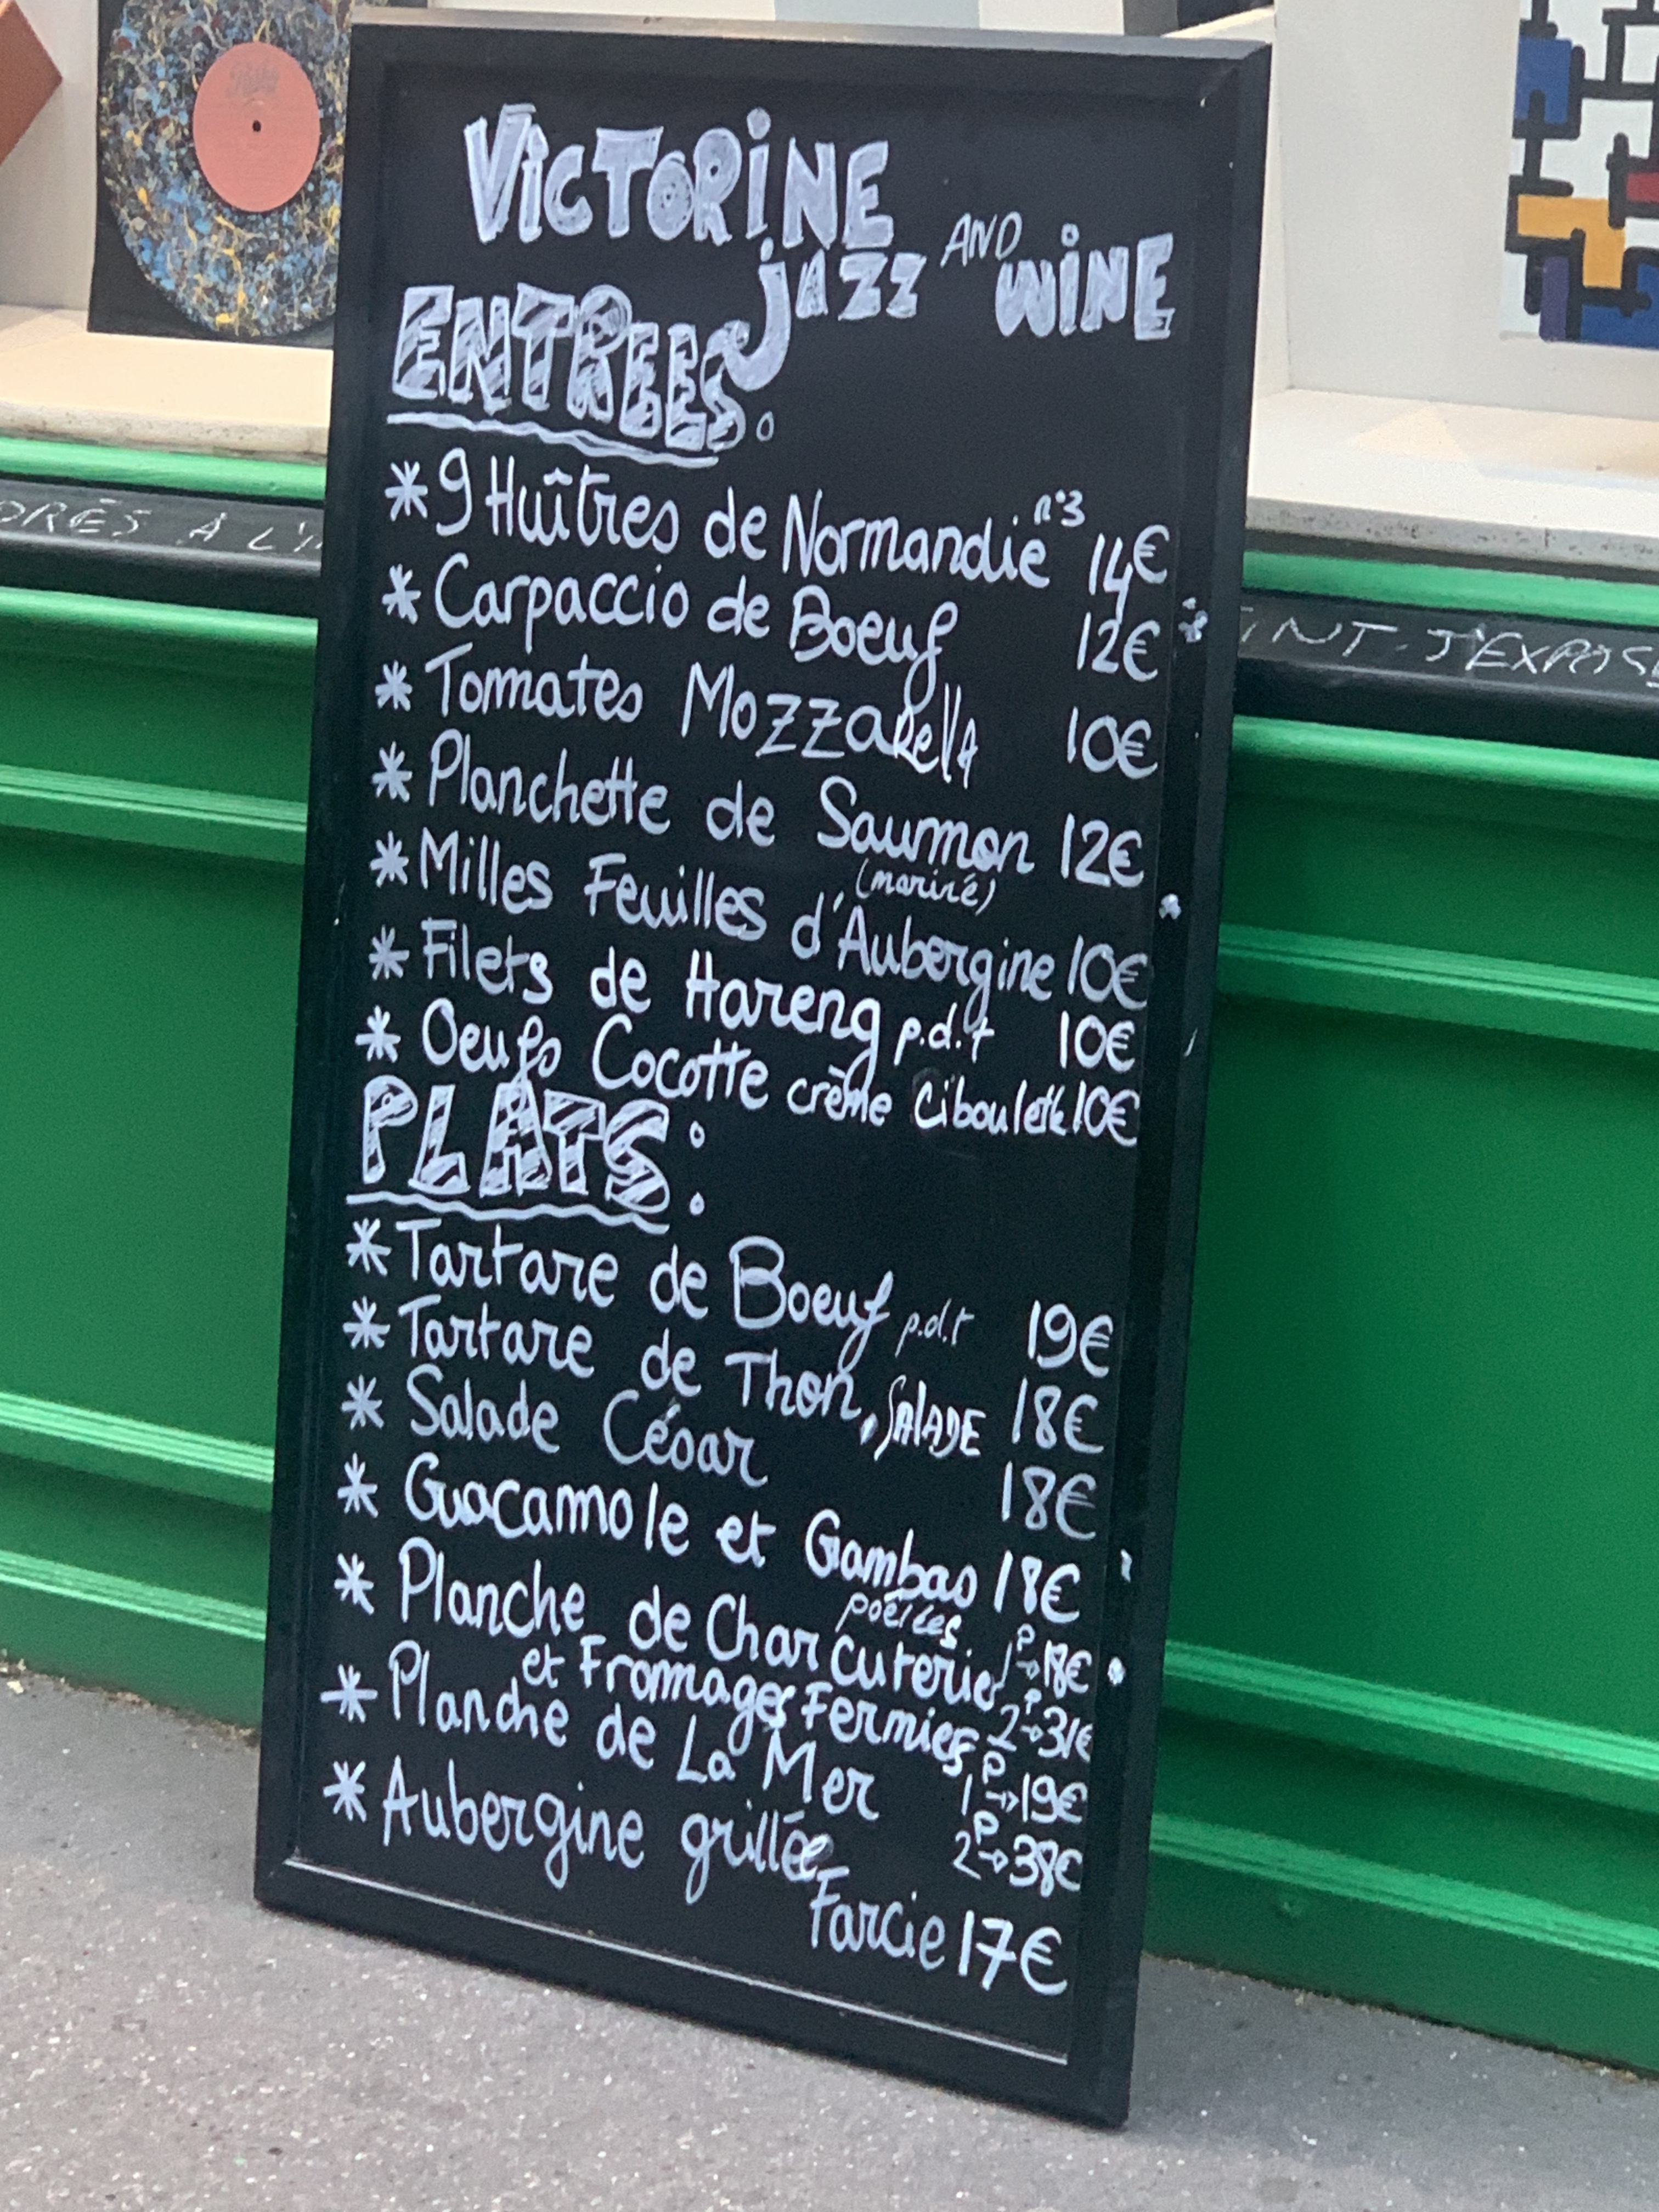 VICTORINE
JAZZ AND WINE
ENTREES:
* 9 Huîtres de Normandie n°3 14€
* Carpaccio de Boeuf 12€
* Tomates Mozzarella 10€
* Planchette de Saumon 12€
(mariné)
* Milles Feuilles d'Aubergine 10€
* Filets de Hareng p.d.t 10€
* Oeufs Cocotte crème Ciboulette 10€
PLATS:
* Tartare de Boeuf p.d.t 19€
* Tartare de Thon, SALADE 18€
* Salade César 18€
* Guacamole et Gambas 18€
poêlées
* Planche de Charcuterie 1P→18€
et Fromages Fermies 2P→31€
* Planche de La Mer 1P→19€
2P→38€
* Aubergine grillée
Farcie 17€
À L'
J'EXPOSE